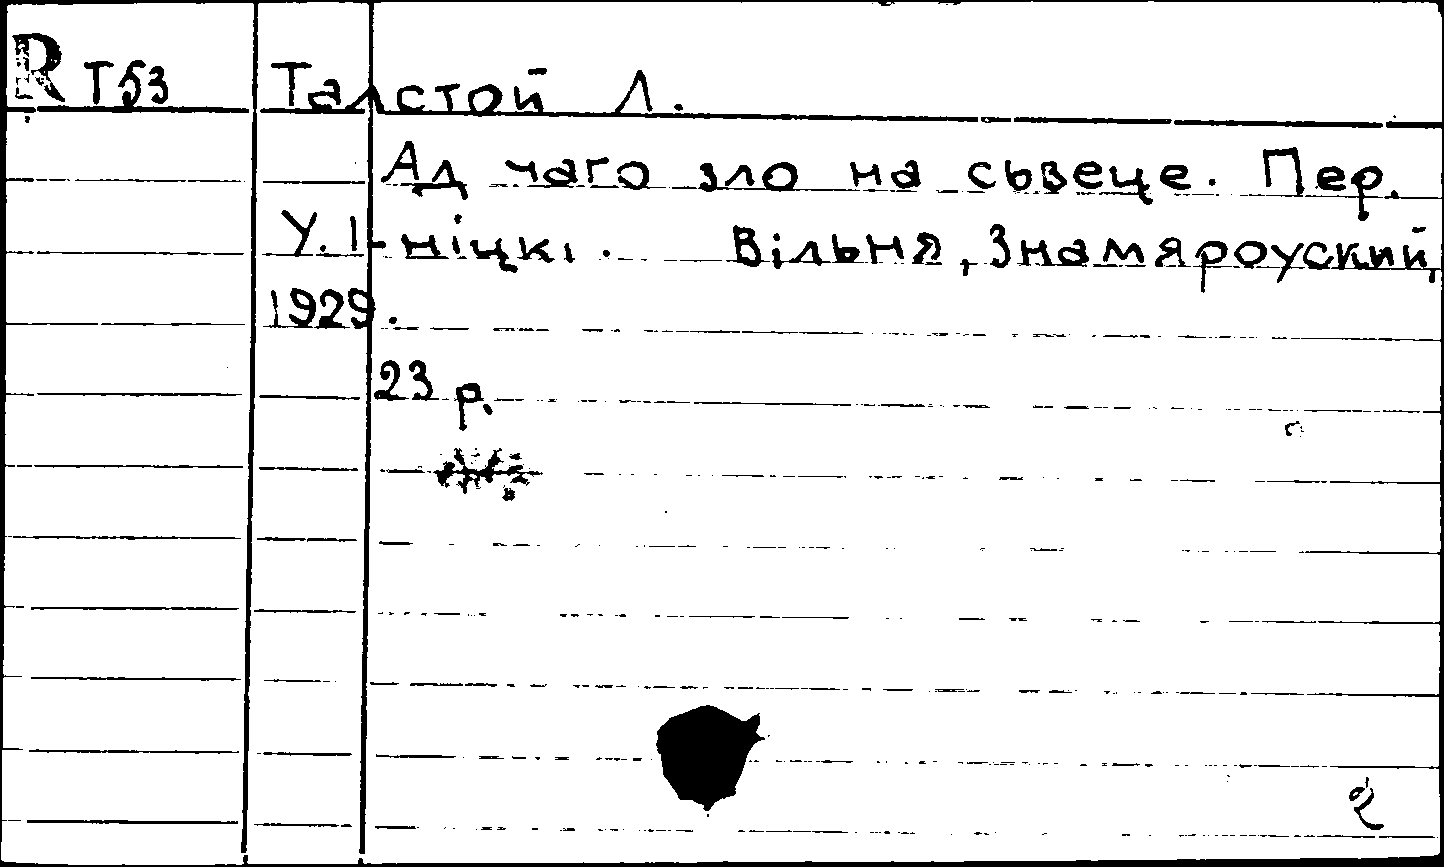 R Т53 Талстой Л.
Ад чаго зло на сьвеце. Пер.
У. І-ніцкі. Вільня, Знамяроуский,
1929.
23 р.
2